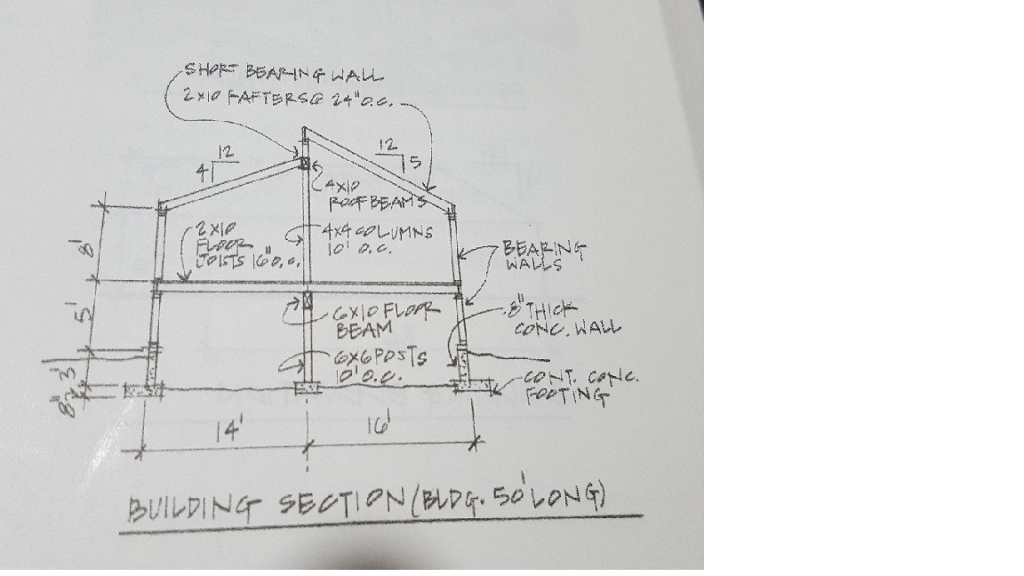 SHORT BEARING WALL
2X10 RAFTERS@ 24" O.C.
12
4
12
5
4X10
ROOF BEAMS
2X10
FLOOR
JOISTS 16" O.C.
4X4 COLUMNS
10' O.C.
BEARING
WALLS
8'
5'
3'
8"
6X10 FLOOR
BEAM
8" THICK
CONC. WALL
6X6 POSTS
10' O.C.
CONT. CONC.
FOOTING
14'
16'
BUILDING SECTION (BLDG. 50' LONG)